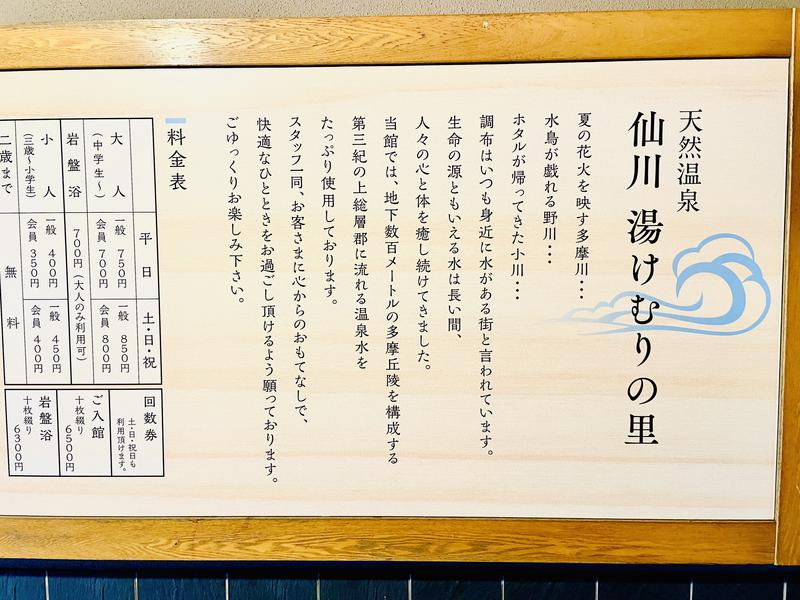 天然温泉
仙川 湯けむりの里
夏の花火を映す多摩川･･･
水鳥が戯れる野川･･･
ホタルが帰ってきた小川･･･
調布はいつも身近に水がある街と言われています。
生命の源ともいえる水は長い間、
人々の心と体を癒し続けてきました。
当館では、地下数百メートルの多摩丘陵を構成する
第三紀の上総層郡に流れる温泉水を
たっぷり使用しております。
スタッフ一同、お客さまに心からのおもてなしで、
快適なひとときをお過ごし頂けるよう願っております。
ごゆっくりお楽しみ下さい。
料金表
平日
土・日・祝
大人
(中学生～)
一般 750円
会員 700円
一般 850円
会員 800円
岩盤浴
700円(大人のみ利用可)
小人
(三歳～小学生)
一般 400円
会員 350円
一般 450円
会員 400円
二歳まで
無料
回数券
土・日・祝日も
利用頂けます。
ご入館
十枚綴り
6500円
岩盤浴
十枚綴り
6300円